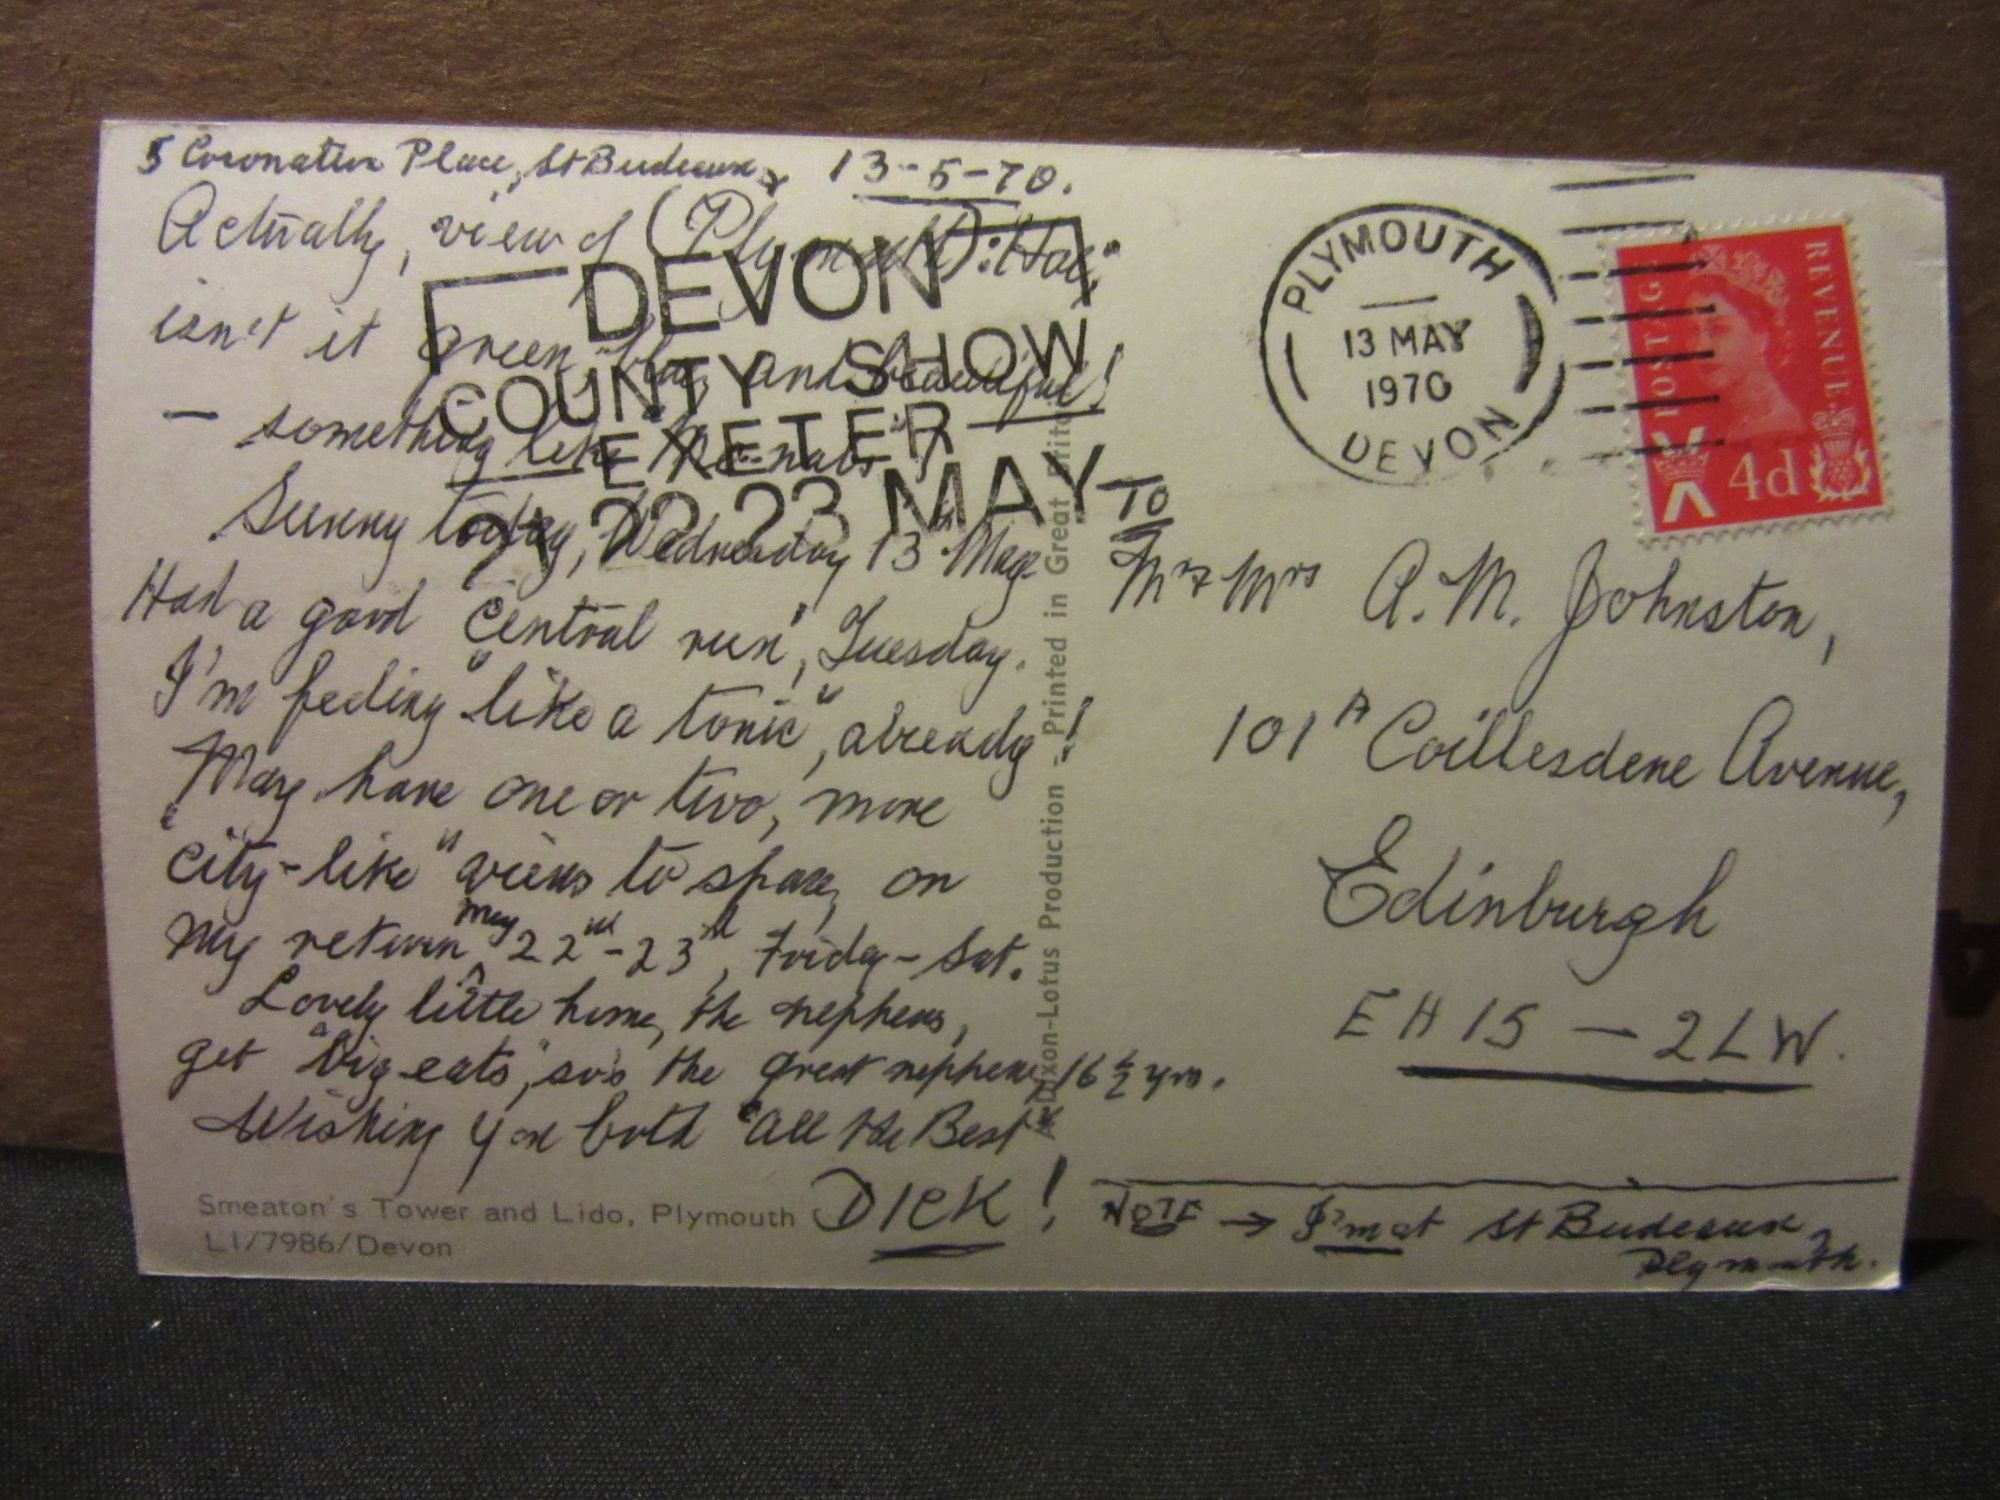 5 Coronation Place, St Budeaux, 13-5-70.
Actually, view of (Plymouth) :Hoe,
isn't it green, and beautiful!
— something like
Sunny today, Wednesday 13th May.
Had a good "Central run", Tuesday.
I'm feeling "like a tonic", already!
May have one or two, more
"City-like" views to spare, on
my return May 22nd-23rd, Friday-Sat.
Lovely little home, the nephews,
get "big-eats," so's the great nephew, 16½ yrs.
Wishing you both "All the Best"
DICK!
Smeaton's Tower and Lido, Plymouth
L1/7986/Devon
DEVON
COUNTY SHOW
EXETER
21 22 23 MAY
A Dixon-Lotus Production - Printed in Great Britain
PLYMOUTH
13 MAY
1970
DEVON
POSTAGE
REVENUE
4d
To
Mr & Mrs A. M. Johnston,
101A Coillesdene Avenue,
Edinburgh
EH15 — 2LW.
NOTE → I'm at St Budeaux,
Plymouth.